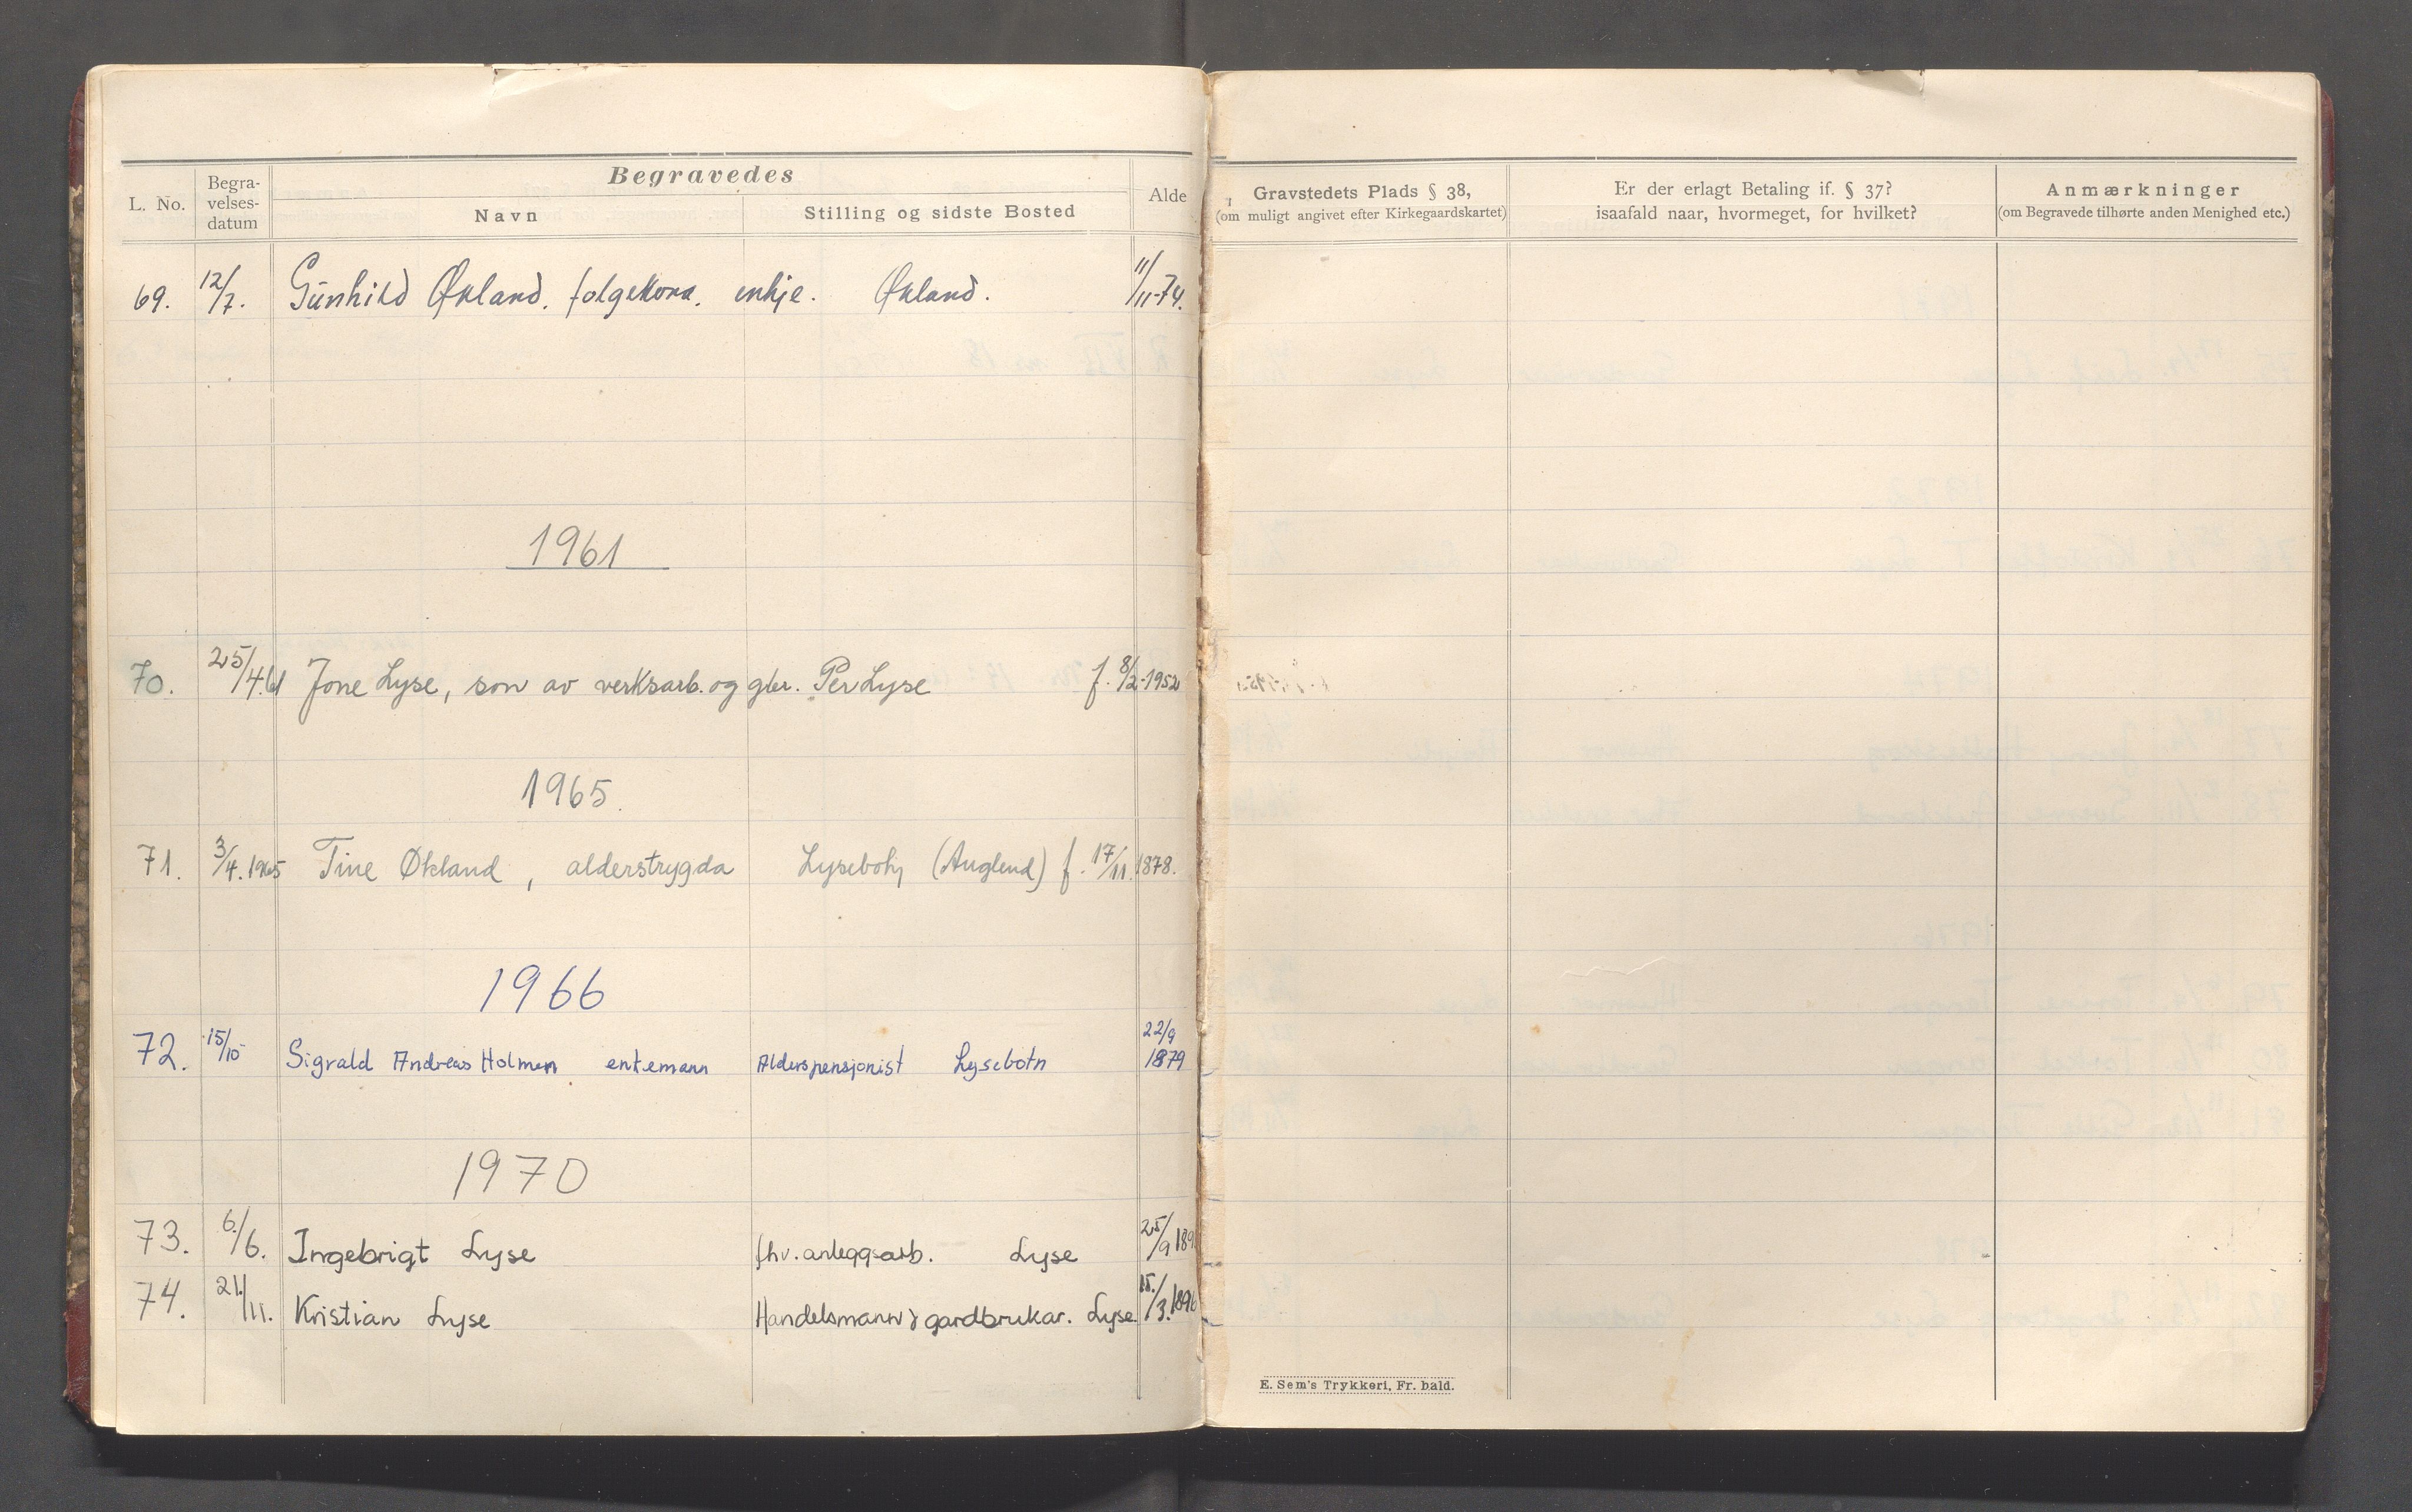 Begravedes
L. No.
Begra-
velses-
datum
Navn
Stilling og sidste Bosted
Alde
Gravstedets Plads § 38,
(om muligt angivet efter Kirkegaardskartet)
Er der erlagt Betaling if. § 37?
isaafald naar, hvormeget, for hvilket?
Anmærkninger
(om Begravede tilhørte anden Menighed etc.)
69. 12/7. Gunhild Økland. folgekona. enkje. Økland. 11/11-74.
1961
70. 25/4.61 Jone Lyse, son av verksarb. og gbr. Per Lyse f. 8/2-1952
1965.
71. 3/4.1965 Tine Økland, alderstrygda Lysebotn (Auglend) f. 17/11.1878.
1966
72. 15/10 Sigvald Andreas Holmen enkemann Alderspensjonist Lysebotn 22/9
1879
1970
73. 6/6. Ingebrigt Lyse fhv. anleggsarb. Lyse 25/9
74. 21/11. Kristian Lyse Handelsmann & gardbrukar. Lyse. 15/3.1896
E. Sem's Trykkeri, Fr.hald.